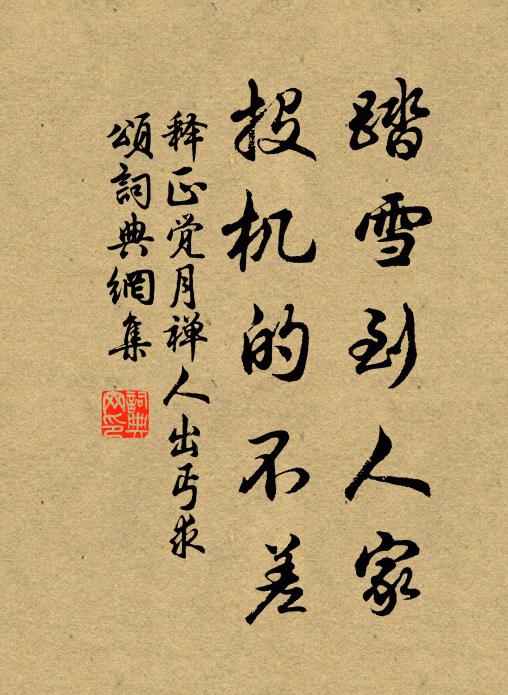 踏雪到人家
投机的不差
释正觉月禅人出丐求
颂词典網集
詞典網印